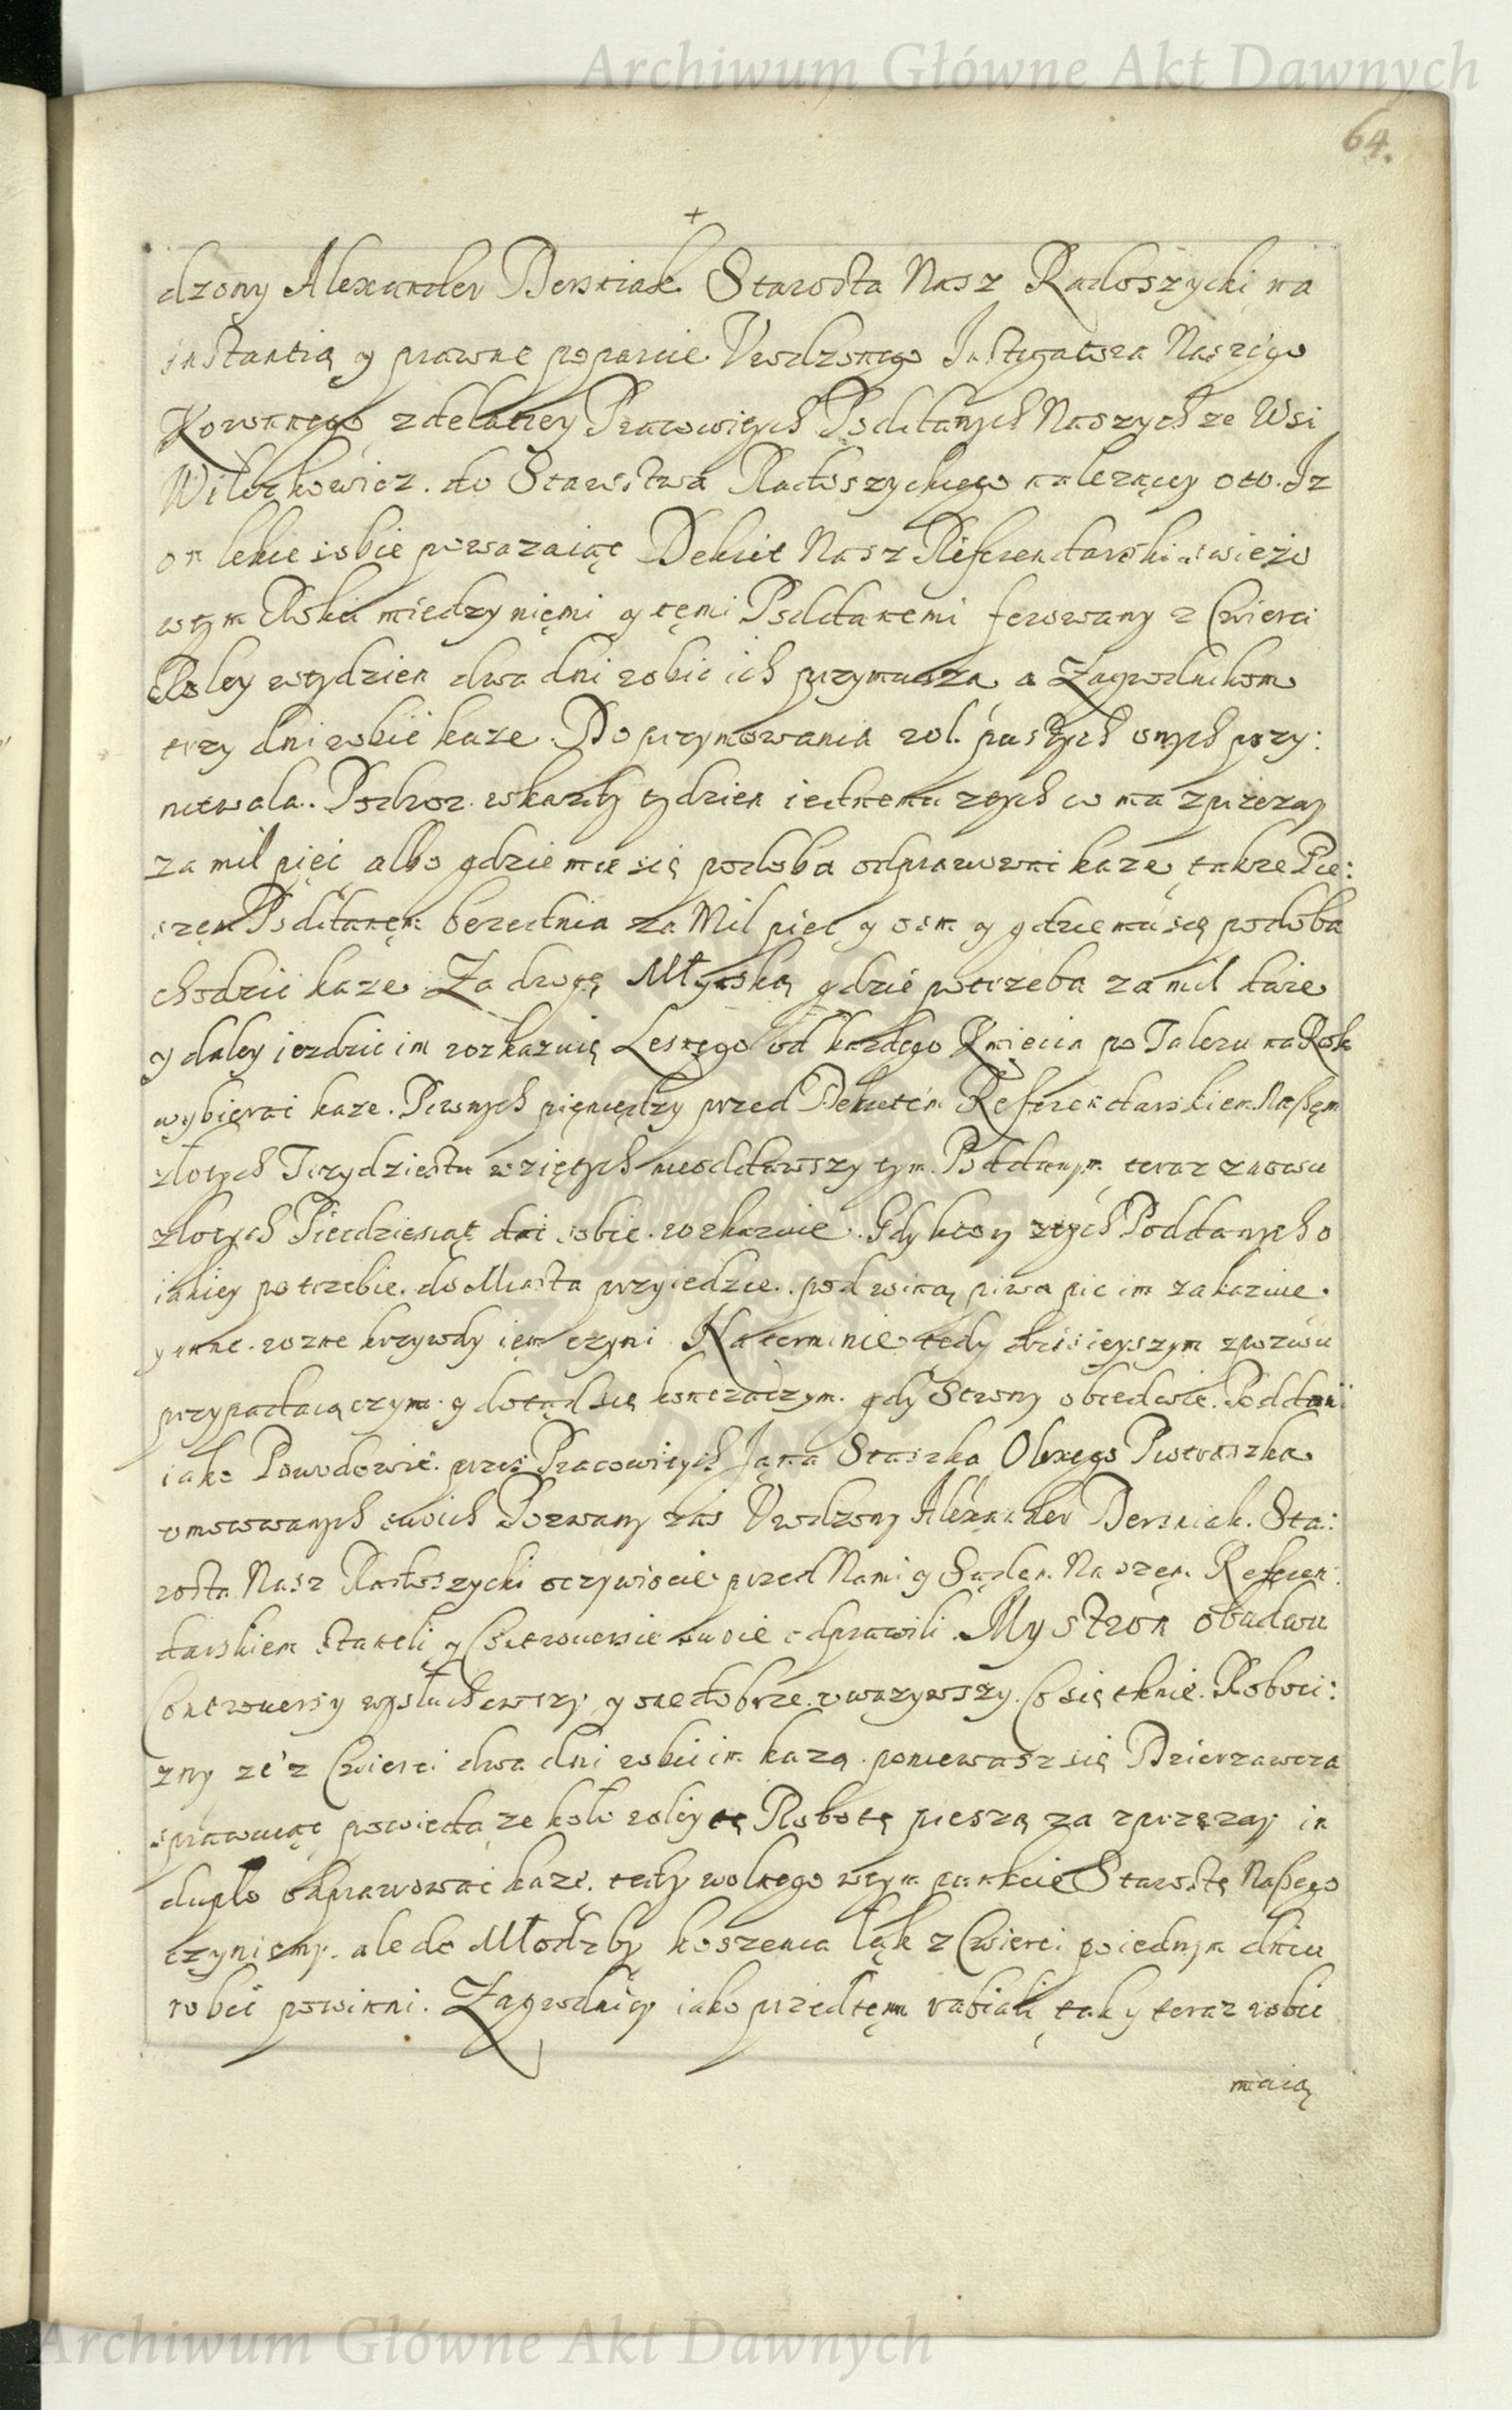 Archiwum Główne Akt Dawnych
64.
+
dzony Alexander Dersniak Starosta Nasz Radoszycki na
instantią y prawne poparcie Urodzonego Instigatora Naszego
Koronnego z delatiey Pracowitych Poddanych Naszych ze Wsi
Wilczkowicz do Starostwa Radoszyckiego należący oto. Iz
on lekce sobie poważaiąc Dekret Nasz Referendarski swieżo
wtym Roku miedzy niemi y temi Poddanemi ferowany z Cwierci
Roley wtydzien dwa dni robic ich przymusza a Zagrodnikom
trzy dni robić każe. Do przymowania rol. pustych onych przy:
niewala. Podroz wkazdy tydzien iednemu z tych co ma zprzezay
za mil pięć albo gdzie mu się podoba odprawowac kaze, także Pie:
szem Poddanem bezednia za Mil piec y osm y gdzie mu się podoba
chodzic kaze. Za drogę Młynską gdzie potrzeba za mil każe
y daley iezdzic im rozkazuię Lesnego od każdego Kmiecia po Taleru na Rok
wybierac kaze. Pewnych pięniędzy przed Dekretem Referendarskiem Naßem
złotych Trzydziestu wziętych nieoddawszy tym Poddanym teraz znowu
złotych Piecdziesiąt dać sobie rozkazuie. Gdy ktory z tych Poddanych o
iakiey potrzebie do Miasta przyiedzie pod winą piwa pic im zakazuie.
y inne rozne krzywdy iem czyni. Na terminie tedy dzisieyszym zpozwu
przypadaiączym y dotąd się kończączym. gdy Strony obiedwie. Poddani
iako Powodowie przez Pracowitych Jana Staszka Obuego Pietraszka
umocowanych swoich Pozwany zas Urodzony Alexander Dersniak. Sta:
rosta Nasz Radoszycki oczywiscie przed Nami y Sądem Naszem Referen:
darskiem staneli y Controuersie swoie odprawili. My stron obudwu
Controuersy wysłuchawszy y one dobrze uwazywszy. Co się tknie. Roboci:
zny ze z Cwierci dwa dni robic im kazą poniewasz się Dzierzawcza
sprawuiąc powieda ze koło roley tę Robotę pieszą za zprzęzay in
duplo odprawowac kaze. tedy wolnego wtym punkcie Starostę Naßego
czyniemy. ale do Młodzby koszenia łąk z Cwierci po iednym dniu
robić powinni. Zagrodnicy iako przedtem rabiali, tak y teraz robic
maią
Archiwum Główne Akt Dawnych